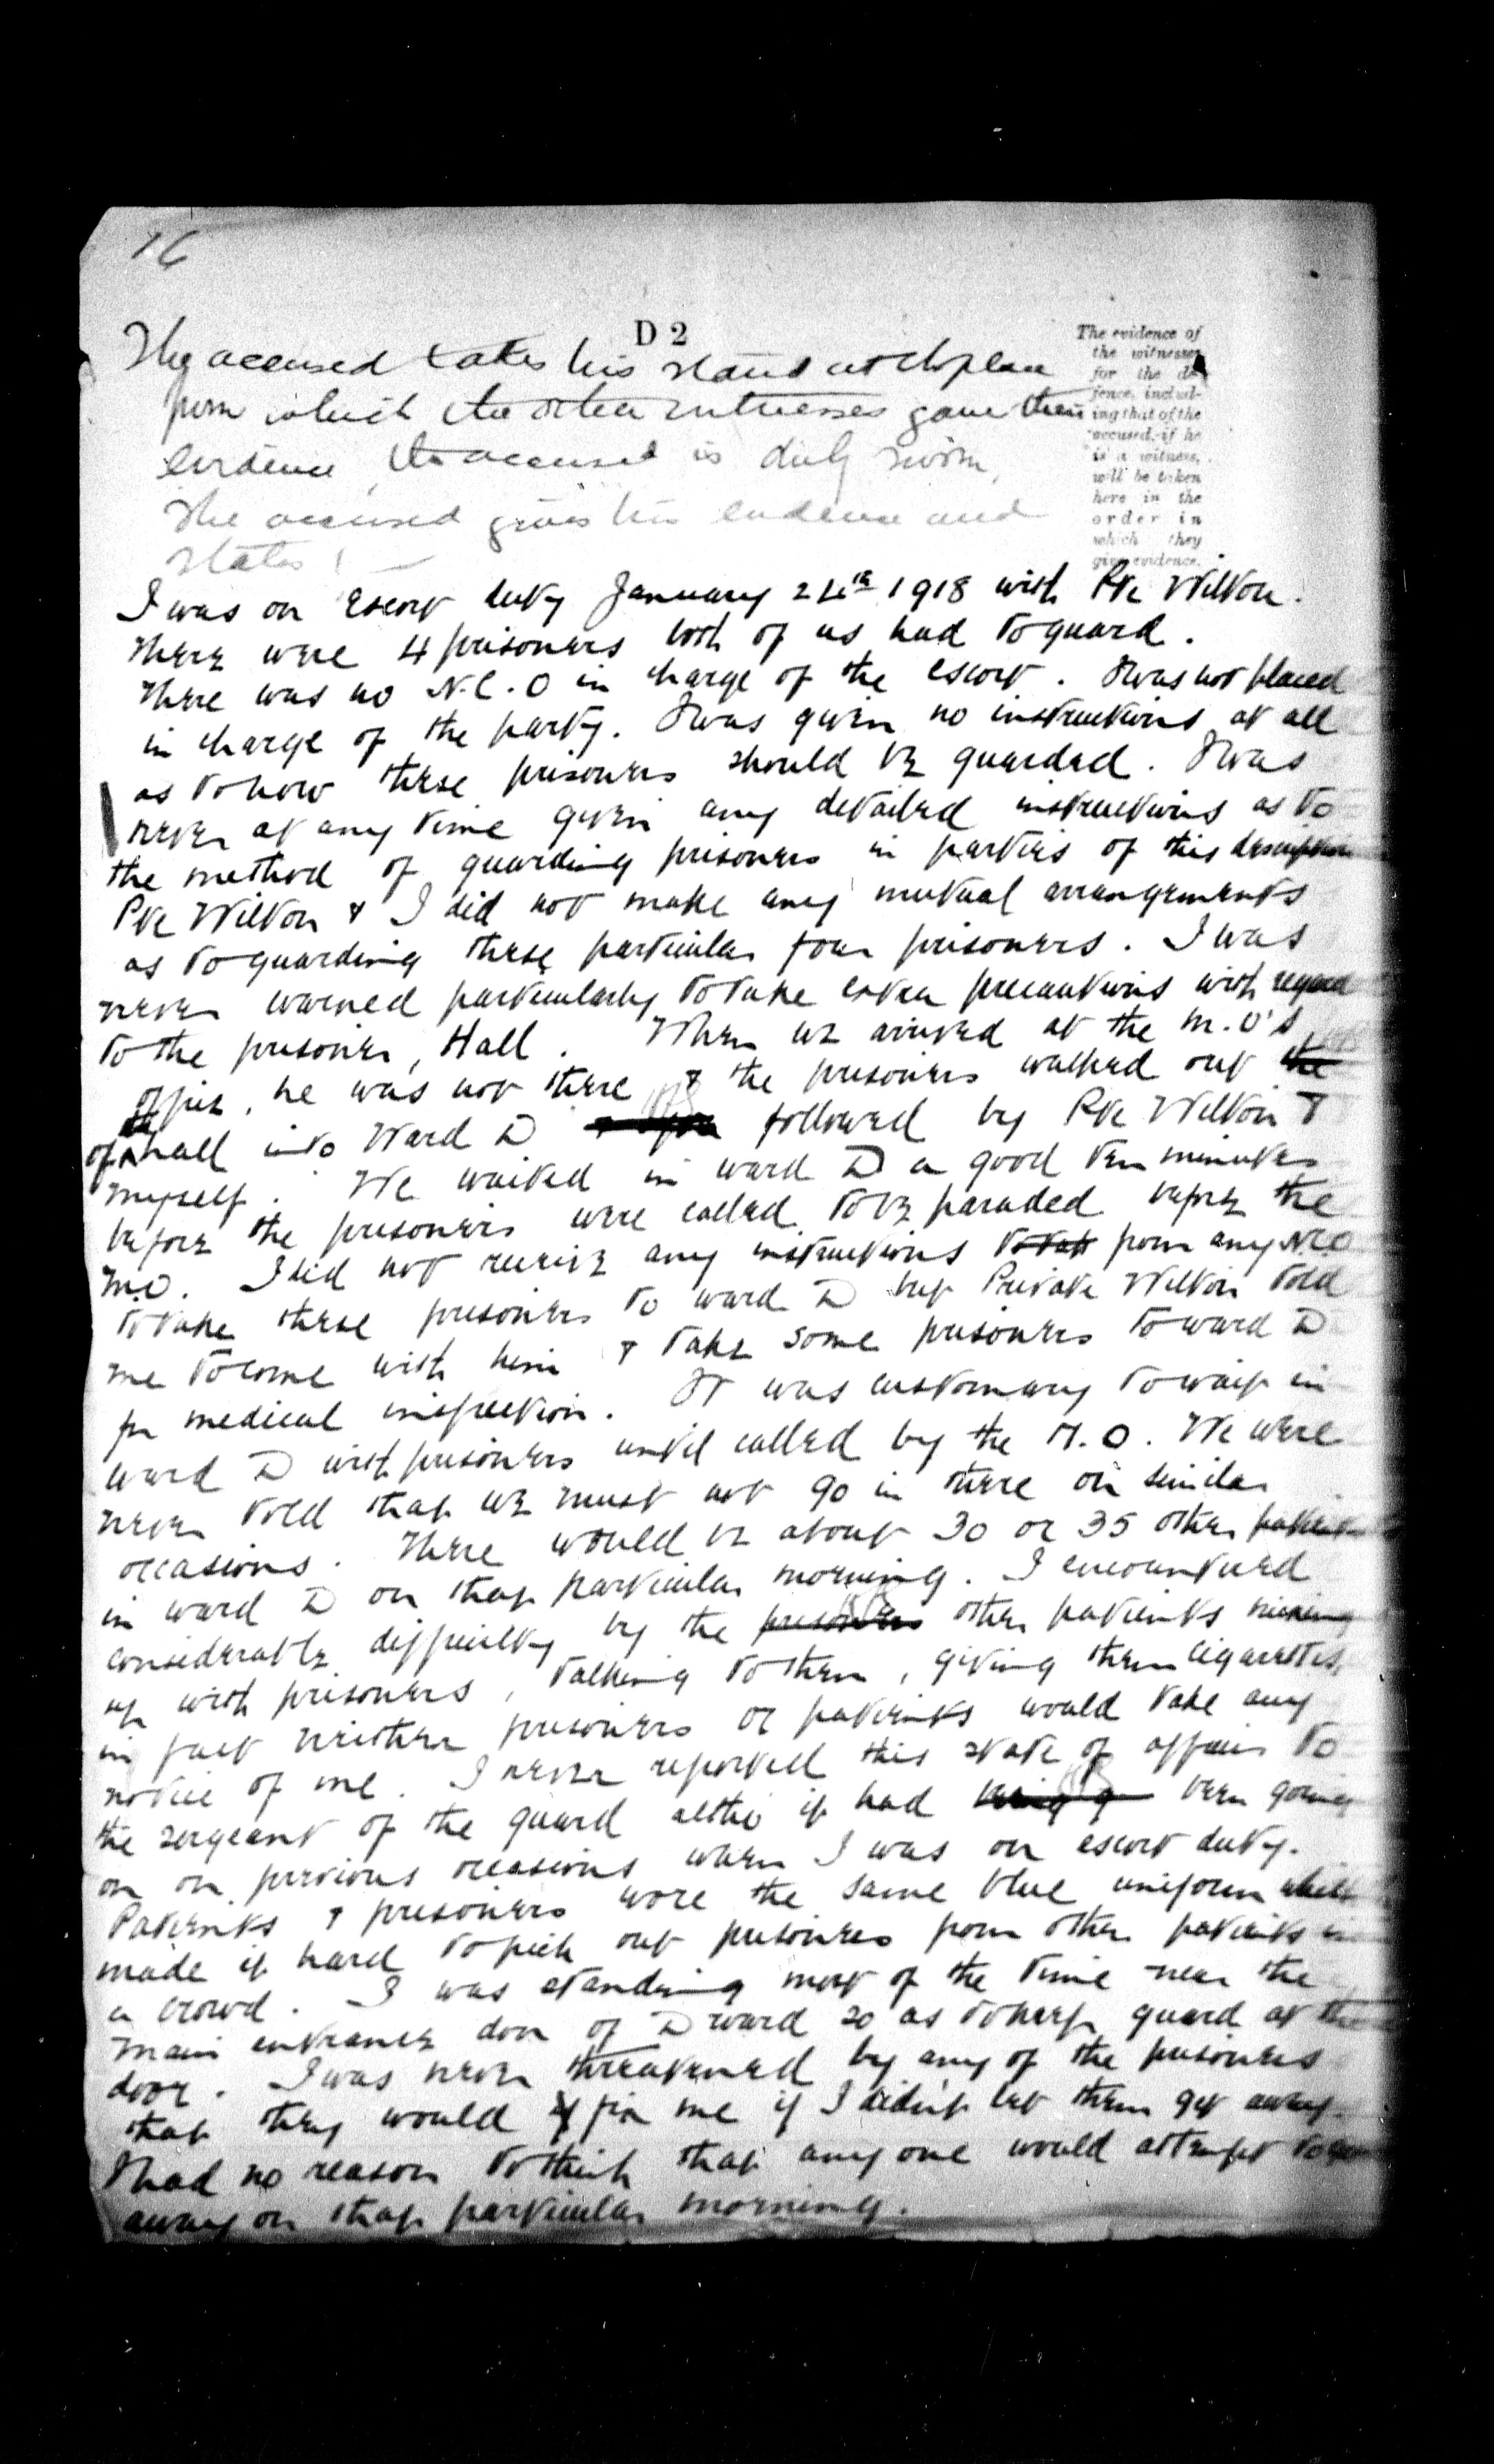 16
D 2
The accused takes his stand at the place
from which the other witnesses gave their
evidence, the accused is duly sworn,
The accused gives his evidence and
states! —
The evidence of
the witnesses
for the de-
fence, includ-
ing that of the
accused, if he
is a witness,
will be taken
here in the
order in
which they
give evidence.
I was on escort duty January 24th 1918 with Pte Wilton.
There were 4 prisoners both of us had to guard.
There was no N.C.O in charge of the escort. I was not placed
in charge of the party. I was given no instructions at all
as to how these prisoners should be guarded. I was
never at any time given any detailed instructions as to
the method of guarding prisoners in parties of this description
Pte Wilton & I did not make any mutual arrangements
as to guarding these particular four prisoners. I was
never warned particularly to take extra precautions with regard
to the prisoner, Hall. When we arrived at the M.O's
office, he was not there & the prisoners walked out the
of the hall into Ward D followed by Pte Wilton &
myself. We waited in ward D a good ten minutes
before the prisoners were called to be paraded before the
M.O. I did not receive any instructions to take from any NCO
to take these prisoners to ward D but Private Wilton told
me to come with him & take some prisoners to ward D
for medical inspection. It was customary to wait in
ward D with prisoners until called by the M.O. We were
never told that we must not go in there on similar
occasions. There would be about 30 or 35 other patients
in ward D on that particular morning. I encountered
considerable difficulty by the prisoners other patients mixing
up with prisoners, talking to them, giving them cigarettes,
in fact neither prisoners or patients would take any
notice of me. I never reported this state of affairs to
the sergeant of the guard altho it had being g been going
on on previous occasions when I was on escort duty.
Patients & prisoners wore the same blue uniform which
made it hard to pick out prisoners from other patients in
a crowd. I was standing most of the time near the
main entrance door of D ward so as to keep guard at the
door. I was never threatened by any of the prisoners
that they would fix me if I didn't let them get away.
I had no reason to think that any one would attempt to get
away on that particular morning.